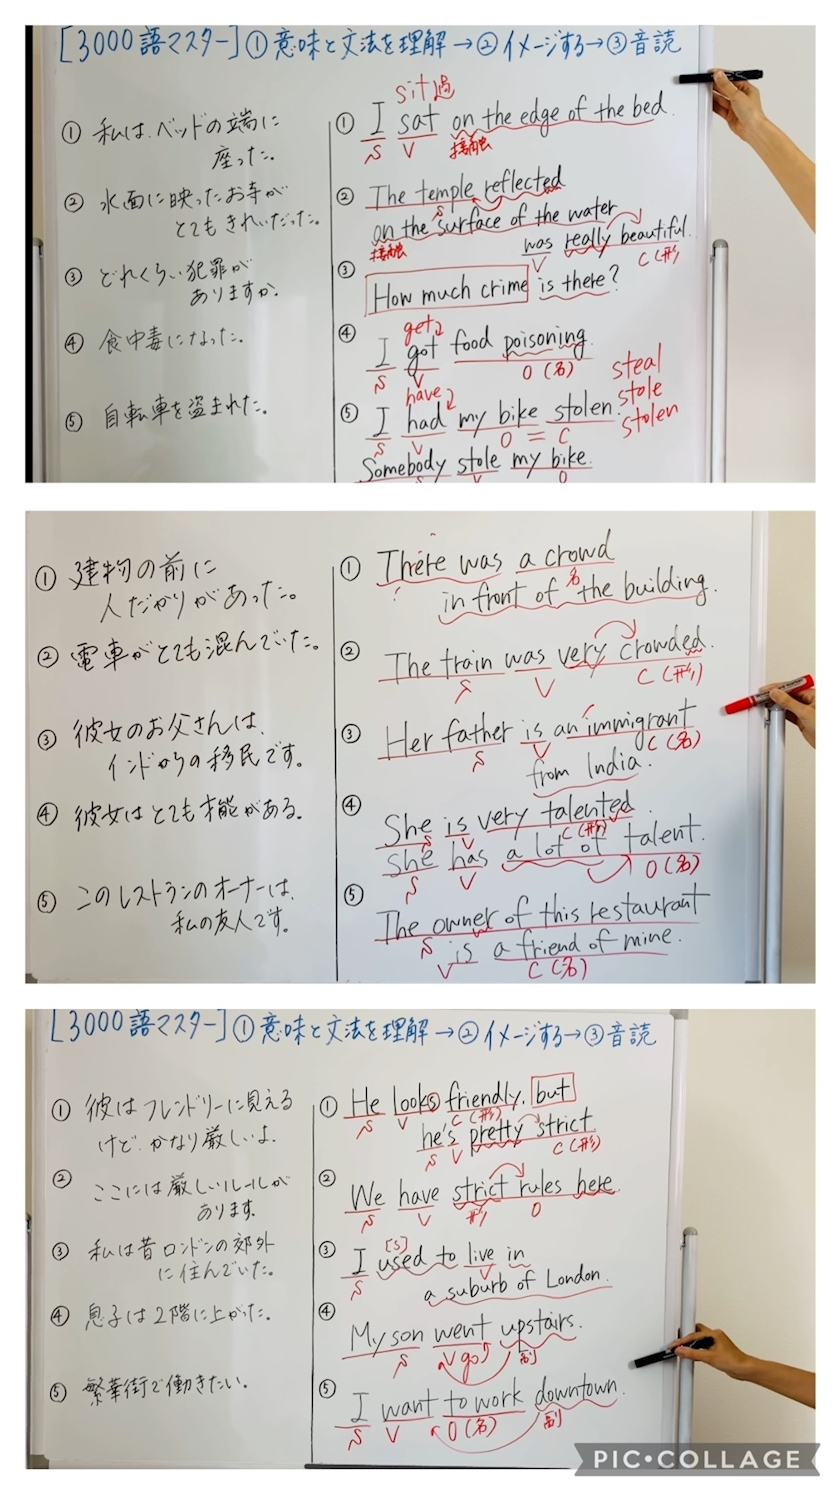 [3000語マスター]①意味と文法を理解→②イメージする→③音読
① 私は、ベッドの端に
座った。
② 水面に映ったお寺が
とてもきれいだった。
③ どれくらい犯罪が
ありますか。
④ 食中毒になった。
⑤ 自転車を盗まれた。
sit 過
① I sat on the edge of the bed.
S V 接触
② The temple reflected
S
on the surface of the water
接触
was really beautiful.
V C(形)
③ How much crime is there?
get
④ I got food poisoning.
S V O(名)
have
⑤ I had my bike stolen.
S V O = C
steal
stole
stolen
Somebody stole my bike.
S V O
① 建物の前に
人だかりがあった。
② 電車がとても混んでいた。
③ 彼女のお父さんは、
インドからの移民です。
④ 彼女はとても才能がある。
⑤ このレストランのオーナーは、
私の友人です。
① There was a crowd
名
in front of the building.
② The train was very crowded.
S V C(形)
③ Her father is an immigrant
S V C(名)
from India.
④ She is very talented.
S V C(形)
She has a lot of talent.
S V O(名)
⑤ The owner of this restaurant
S
is a friend of mine.
V C(名)
[3000語マスター]①意味と文法を理解→②イメージする→③音読
① 彼はフレンドリーに見える
けど、かなり厳しいよ。
② ここには厳しいルールが
あります。
③ 私は昔ロンドンの郊外
に住んでいた。
④ 息子は2階に上がった。
⑤ 繁華街で働きたい。
① He looks friendly, but
S V C(形)
he's pretty strict
S V C(形)
② We have strict rules here.
S V 形 O
[s]
③ I used to live in
S V
a suburb of London.
④ My son went upstairs.
S V go 副
⑤ I want to work downtown.
S V O(名) 副
PIC•COLLAGE